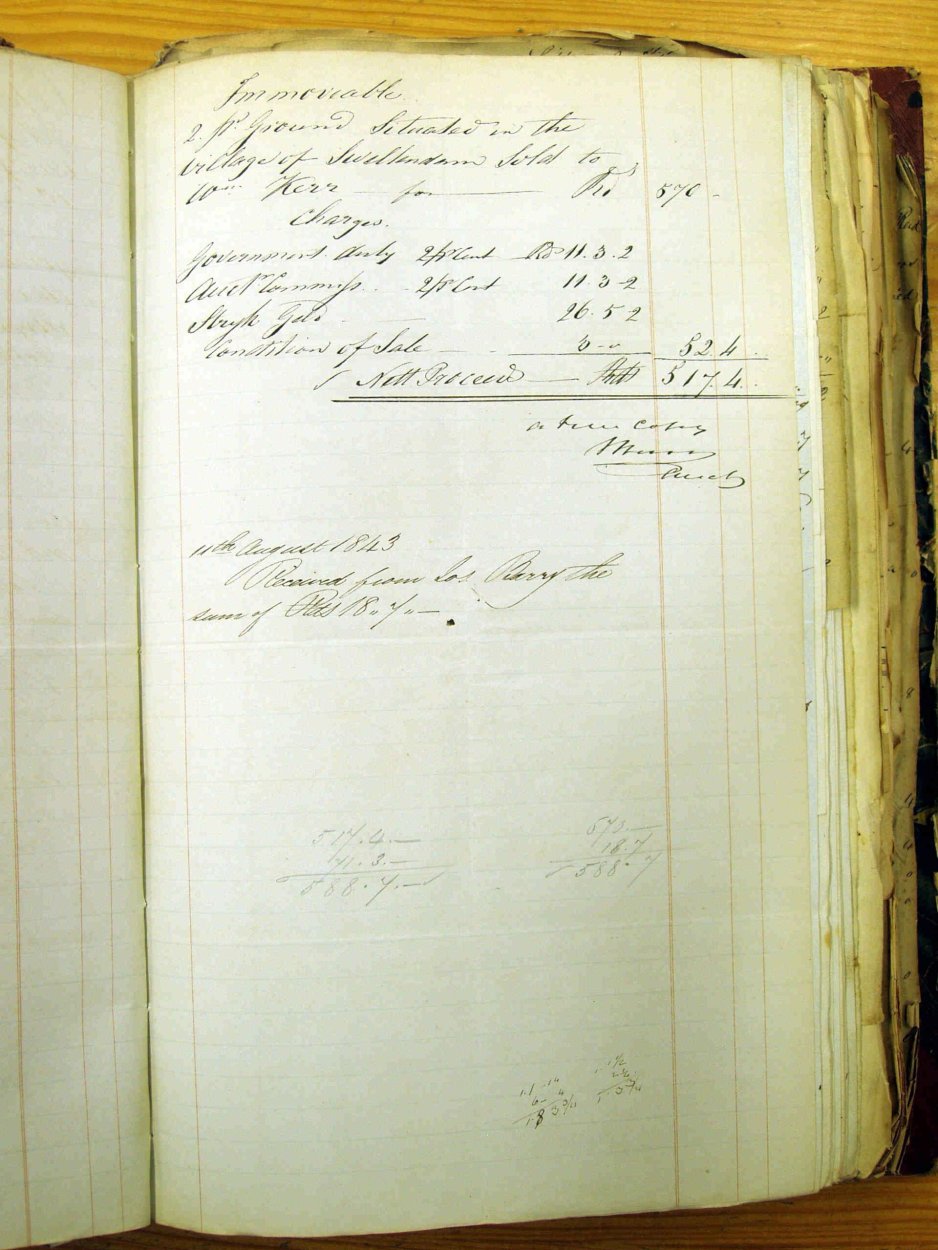 Immoveable
2. ps. Ground Situated in the
village of Swellendam Sold to
Wm Kerr — for — Rds 570 -
Charges.
Government duty 2 p Cent Rds 11. 3. 2
Auct Commiss. 2 p Cent 11. 3 - 2
Stryk Geld — 26. 5 2
Condition of Sale — 3 - " 52. 4
Nett Proceed — Rds 517. 4
a true Copy
Auct
11th August 1843
Received from Jos Barry the
sum of Rds 18 " 7 " —
517. 4. — 573 —
71. 3. — 18. 7
588. 7. — 588. 7